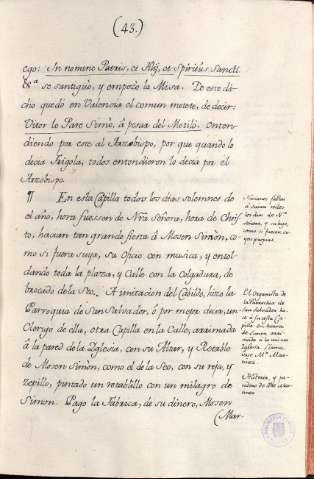 (43.)
ego: In nomine Patris, et Filij, et Spiritus Sancti.
&ª se santiguò, y empezò la Mesa. De este di-
cho quedò en Valencia el comun motete, de decir:
Vitor lo Pare Simò, â pesar del Merilò: enten-
diendo por ese al Arzobispo, por que quando lo
decia Frigola, todos entendieron lo decia por el
Arzobispo.
¶ En esta Capilla todos los dias solemnes de
el año, hora fuessen de Nra Señora, hora de Chris-
to, hacian tan grande fiesta â Mosen Simon, co-
mo si fuera suya, su Oficio con musica, y entol-
dando toda la plaza, y Calle con la Colgadura, de
brocado de la Seo. A imitacion del Cabildo, hizo la
Parroquia de San Salvador, ò por mejor decir, un
Clerigo de ella, otra Capilla en la Calle, arrimada
â la pared de la Iglesia, con su Altar, y Retablo
de Mosen Simon, como el de la Seo, con su reja, y
zepillo, pintado un retablillo con un milagro de
Simon. Pagò la Fabrica, de su dinero, Mosen
(Mar-
todos
los dias de Nª
Señora, y
como si fueran su-
yos propios.
El Organista de
la Parroquia de
San Salvador ha-
ce
Capi-
lla
de Simon, arri-
mado a la misma
Iglesia,
Mn Mar-